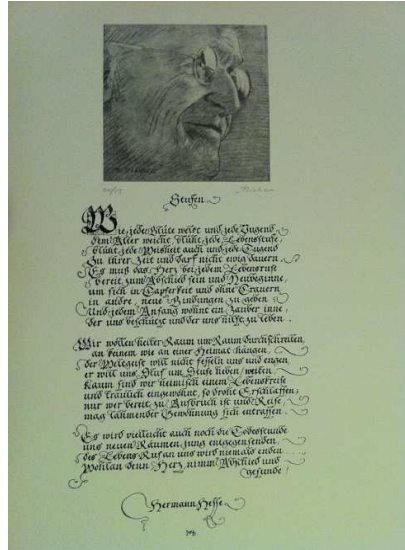 Stufen
Wie jede Blüte welkt und jede Jugend
dem Alter weicht, blüht jede Lebensstufe,
blüht jede Weisheit auch und jede Tugend
Zu ihrer Zeit und darf nicht ewig dauern.
Es muß das Herz bei jedem Lebensrufe
bereit zum Abschied sein und Neubeginne,
um sich in Tapferkeit und ohne Trauern
in andre, neue Bindungen zu geben.
Und jedem Anfang wohnt ein Zauber inne,
der uns beschützt und der uns hilft zu leben.
Wir wollen heiter Raum um Raum durchschreiten,
an keinem wie an einer Heimat hängen,
der Weltgeist will nicht fesseln uns und engen,
er will uns Stuf um Stufe heben, weiten.
Kaum sind wir heimisch einem Lebenskreise
und traulich eingewohnt, so droht Erschlaffen;
nur wer bereit zu Aufbruch ist und Reise,
mag lähmender Gewöhnung sich entraffen.
Es wird vielleicht auch noch die Todesstunde
uns neuen Räumen jung entgegensenden,
des Lebens Ruf an uns wird niemals enden...
Wohlan denn Herz, nimm Abschied und
gesunde!
Hermann Hesse